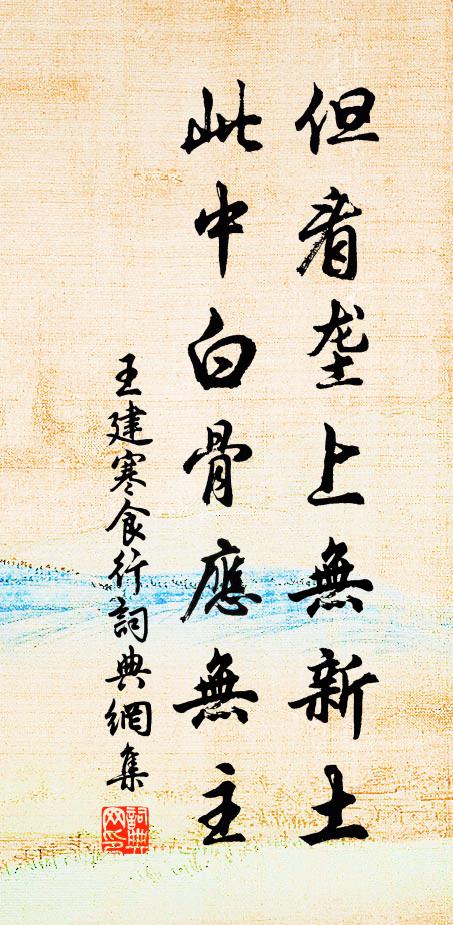 但看垄上無新土
此中白骨應無主
王建寒食行詞典網集
詞典網印